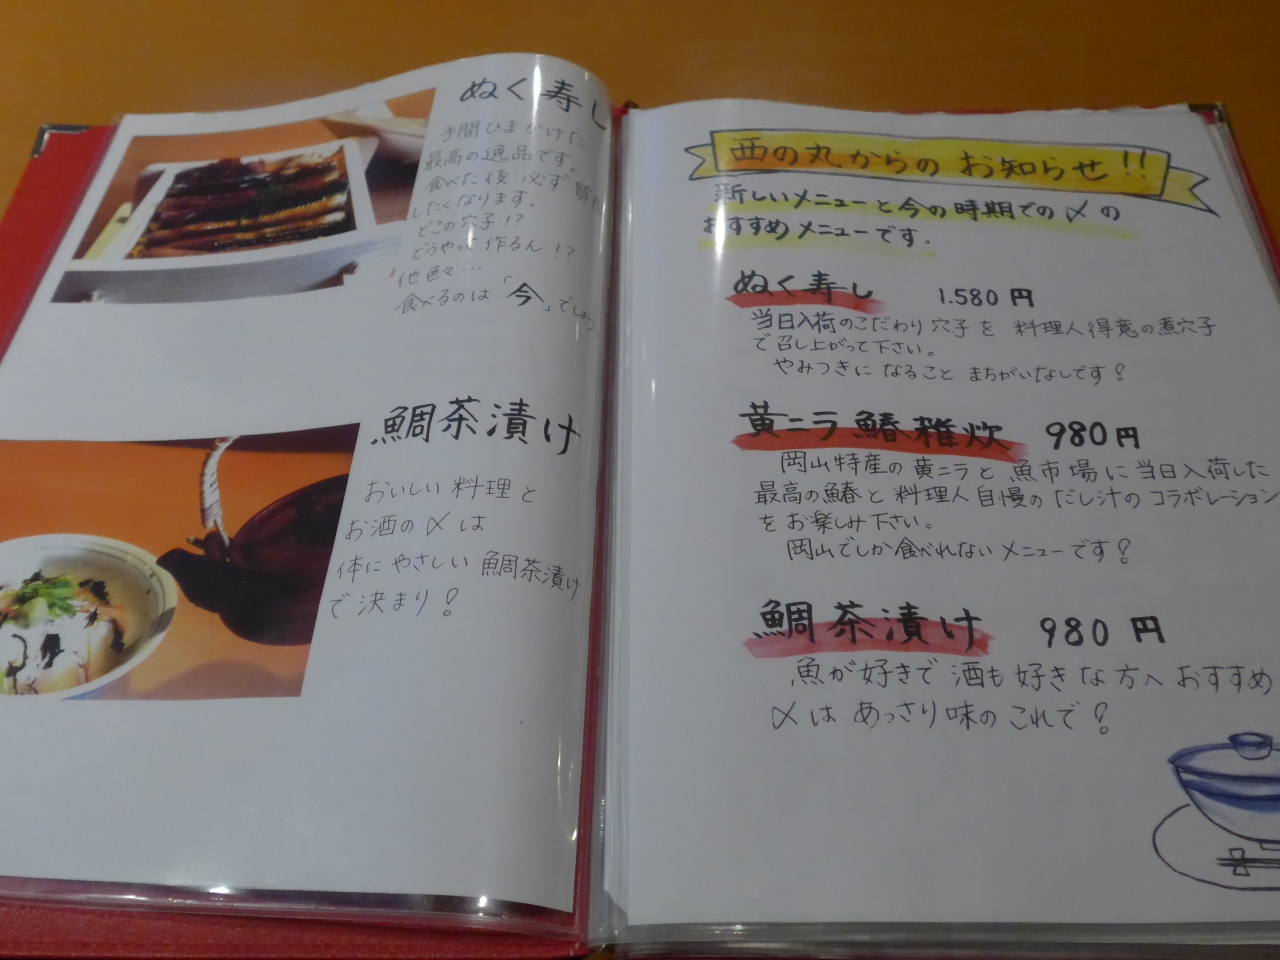 ぬく寿し
手間ひまかけた
最高の逸品です。
食べた後 必ず
したくなります。
どこの穴子!?
どうやって作るん!?
他色々…
食べるのは「今」でしょ
鯛茶漬け
おいしい料理と
お酒の〆は
体にやさしい鯛茶漬け
で決まり!
西の丸からのお知らせ!!
新しいメニューと今の時期での〆の
おすすめメニューです.
ぬく寿し 1.580円
当日入荷のこだわり穴子を 料理人得意の煮穴子
で召し上がって下さい。
やみつきになること まちがいなしです!
黄ニラ鰆雑炊 980円
岡山特産の黄ニラと 魚市場に当日入荷した
最高の鰆と料理人自慢のだし汁のコラボレーション
をお楽しみ下さい。
岡山でしか食べれないメニューです!
鯛茶漬け 980円
魚が好きで酒も好きな方へおすすめ
〆は あっさり味のこれで!